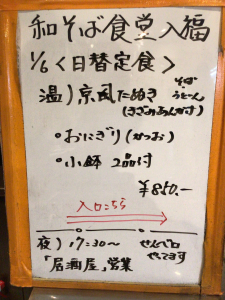 和そば食堂入福
1/6<日替定食>
温)京風たぬき そば うどん
(きざみあんかけ)
・おにぎり(かつお)
・小鉢 2品付
¥850.-
入口こちら
夜)17:30〜 せんべろ やってます
「居酒屋」営業